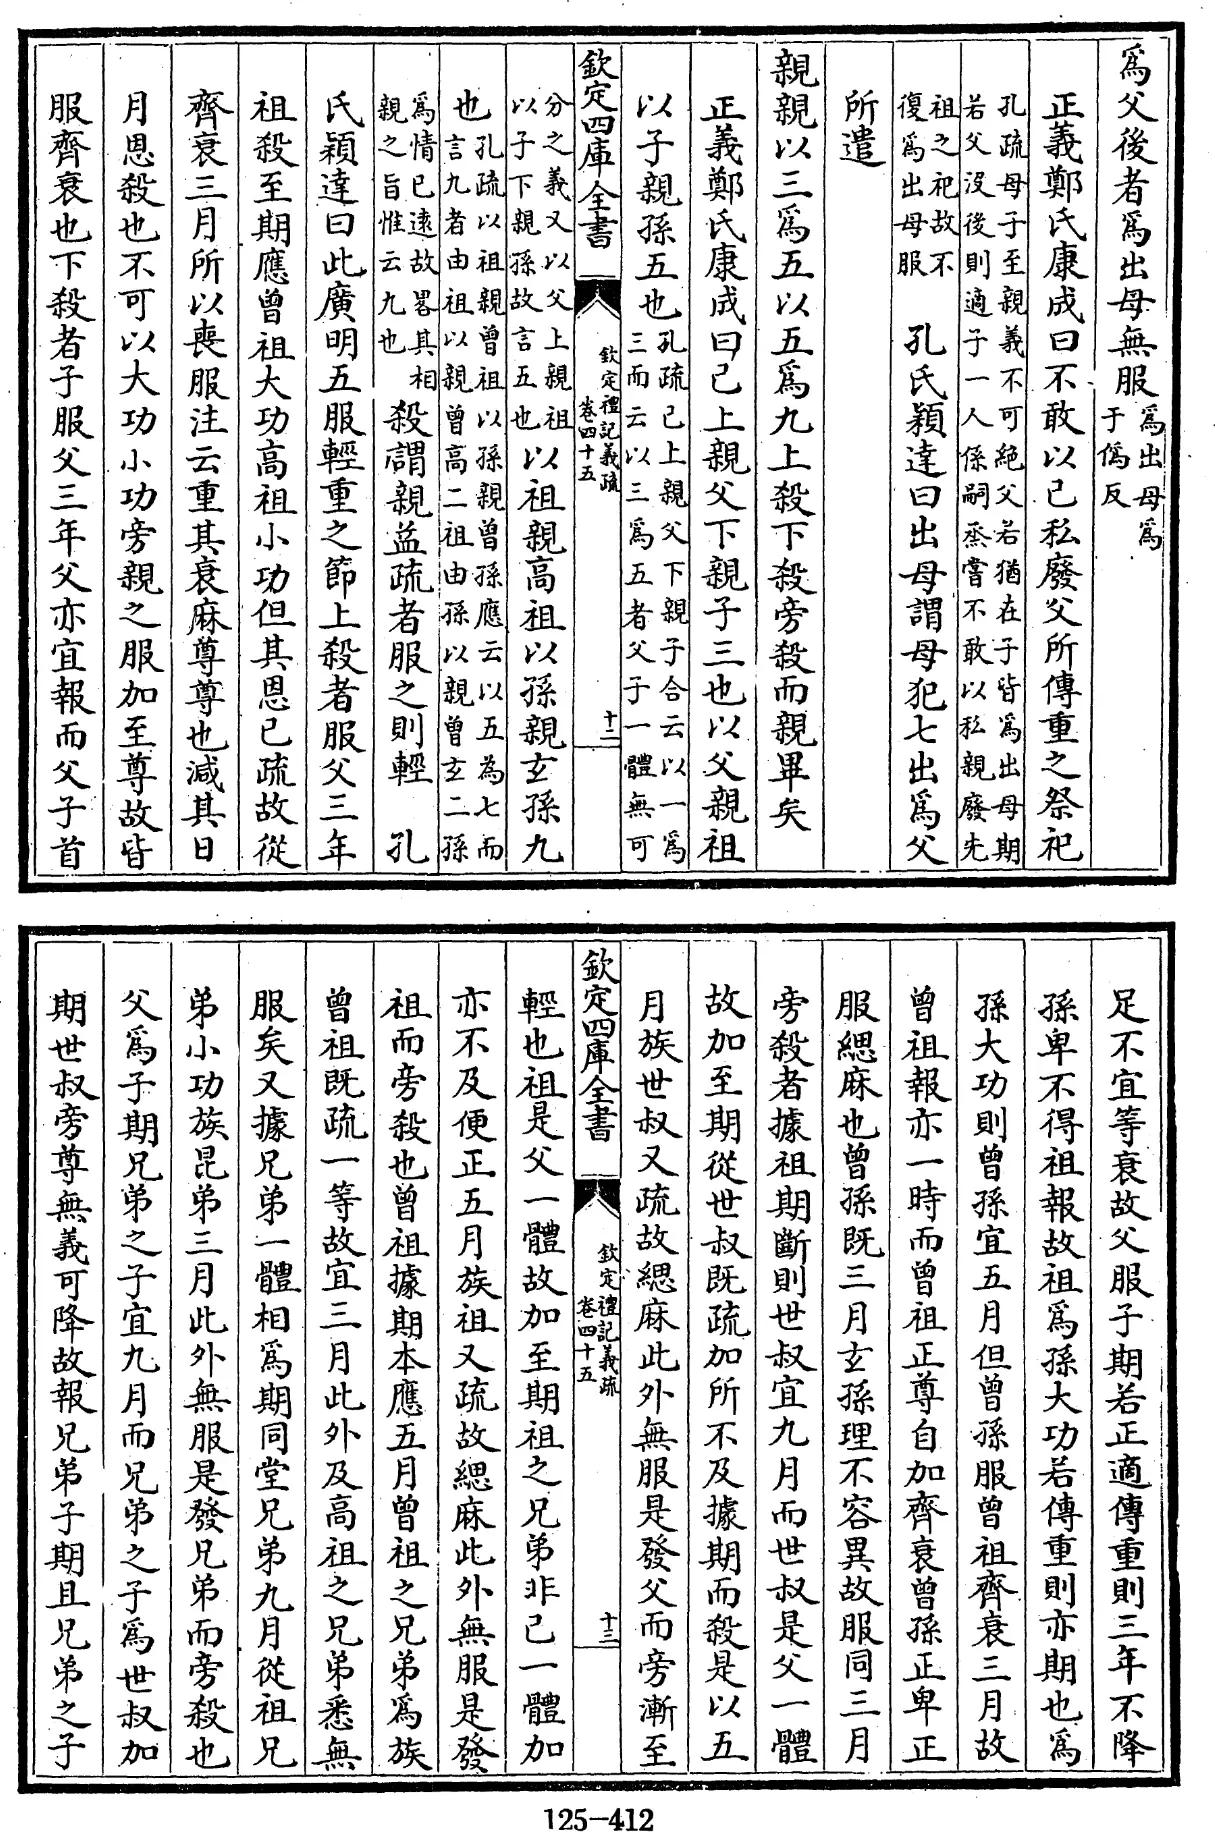 爲父後者爲出母無服爲出母爲于僞反
正義鄭氏康成曰不敢以己私廢父所傳重之祭祀
孔疏母子至親義不可絶父若猶在子皆爲出母期若父沒後則適子一人係嗣烝嘗不敢以私親廢先
祖之祀故不復爲出母服 孔氏穎達曰出母謂母犯七出爲父
所遣
親親以三爲五以五爲九上殺下殺旁殺而親畢矣
正義鄭氏康成曰己上親父下親子三也以父親祖
以子親孫五也孔疏己上親父下親子合云以一爲三而云以三爲五者父子一體無可
欽定四庫全書 欽定禮記義疏卷四十五 十二
分之義又以父上親祖以子下親孫故言五也以祖親高祖以孫親玄孫九
也孔疏以祖親曾祖以孫親曾孫應云以五為七而言九者由祖以親曾高二祖由孫以親曾玄二孫
爲情已遠故畧其相親之旨惟云九也殺謂親益疏者服之則輕 孔
氏穎達曰此廣明五服輕重之節上殺者服父三年
祖殺至期應曾祖大功高祖小功但其恩已疏故從
齊衰三月所以喪服注云重其衰麻尊尊也減其日
月恩殺也不可以大功小功旁親之服加至尊故皆
服齊衰也下殺者子服父三年父亦宜報而父子首
足不宜等衰故父服子期若正適傳重則三年不降
孫卑不得祖報故祖爲孫大功若傳重則亦期也爲
孫大功則曾孫宜五月但曾孫服曾祖齊衰三月故
曾祖報亦一時而曾祖正尊自加齊衰曾孫正卑正
服緦麻也曾孫既三月玄孫理不容異故服同三月
旁殺者據祖期斷則世叔宜九月而世叔是父一體
故加至期從世叔既疏加所不及據期而殺是以五
月族世叔又疏故緦麻此外無服是發父而旁漸至
欽定四庫全書 欽定禮記義疏卷四十五 十三
輕也祖是父一體故加至期祖之兄弟非己一體加
亦不及便正五月族祖又疏故緦麻此外無服是發
祖而旁殺也曾祖據期本應五月曾祖之兄弟爲族
曾祖既疏一等故宜三月此外及高祖之兄弟悉無
服矣又據兄弟一體相爲期同堂兄弟九月從祖兄
弟小功族昆弟三月此外無服是發兄弟而旁殺也
父爲子期兄弟之子宜九月而兄弟之子爲世叔加
期世叔旁尊無義可降故報兄弟子期且兄弟之子
125-412